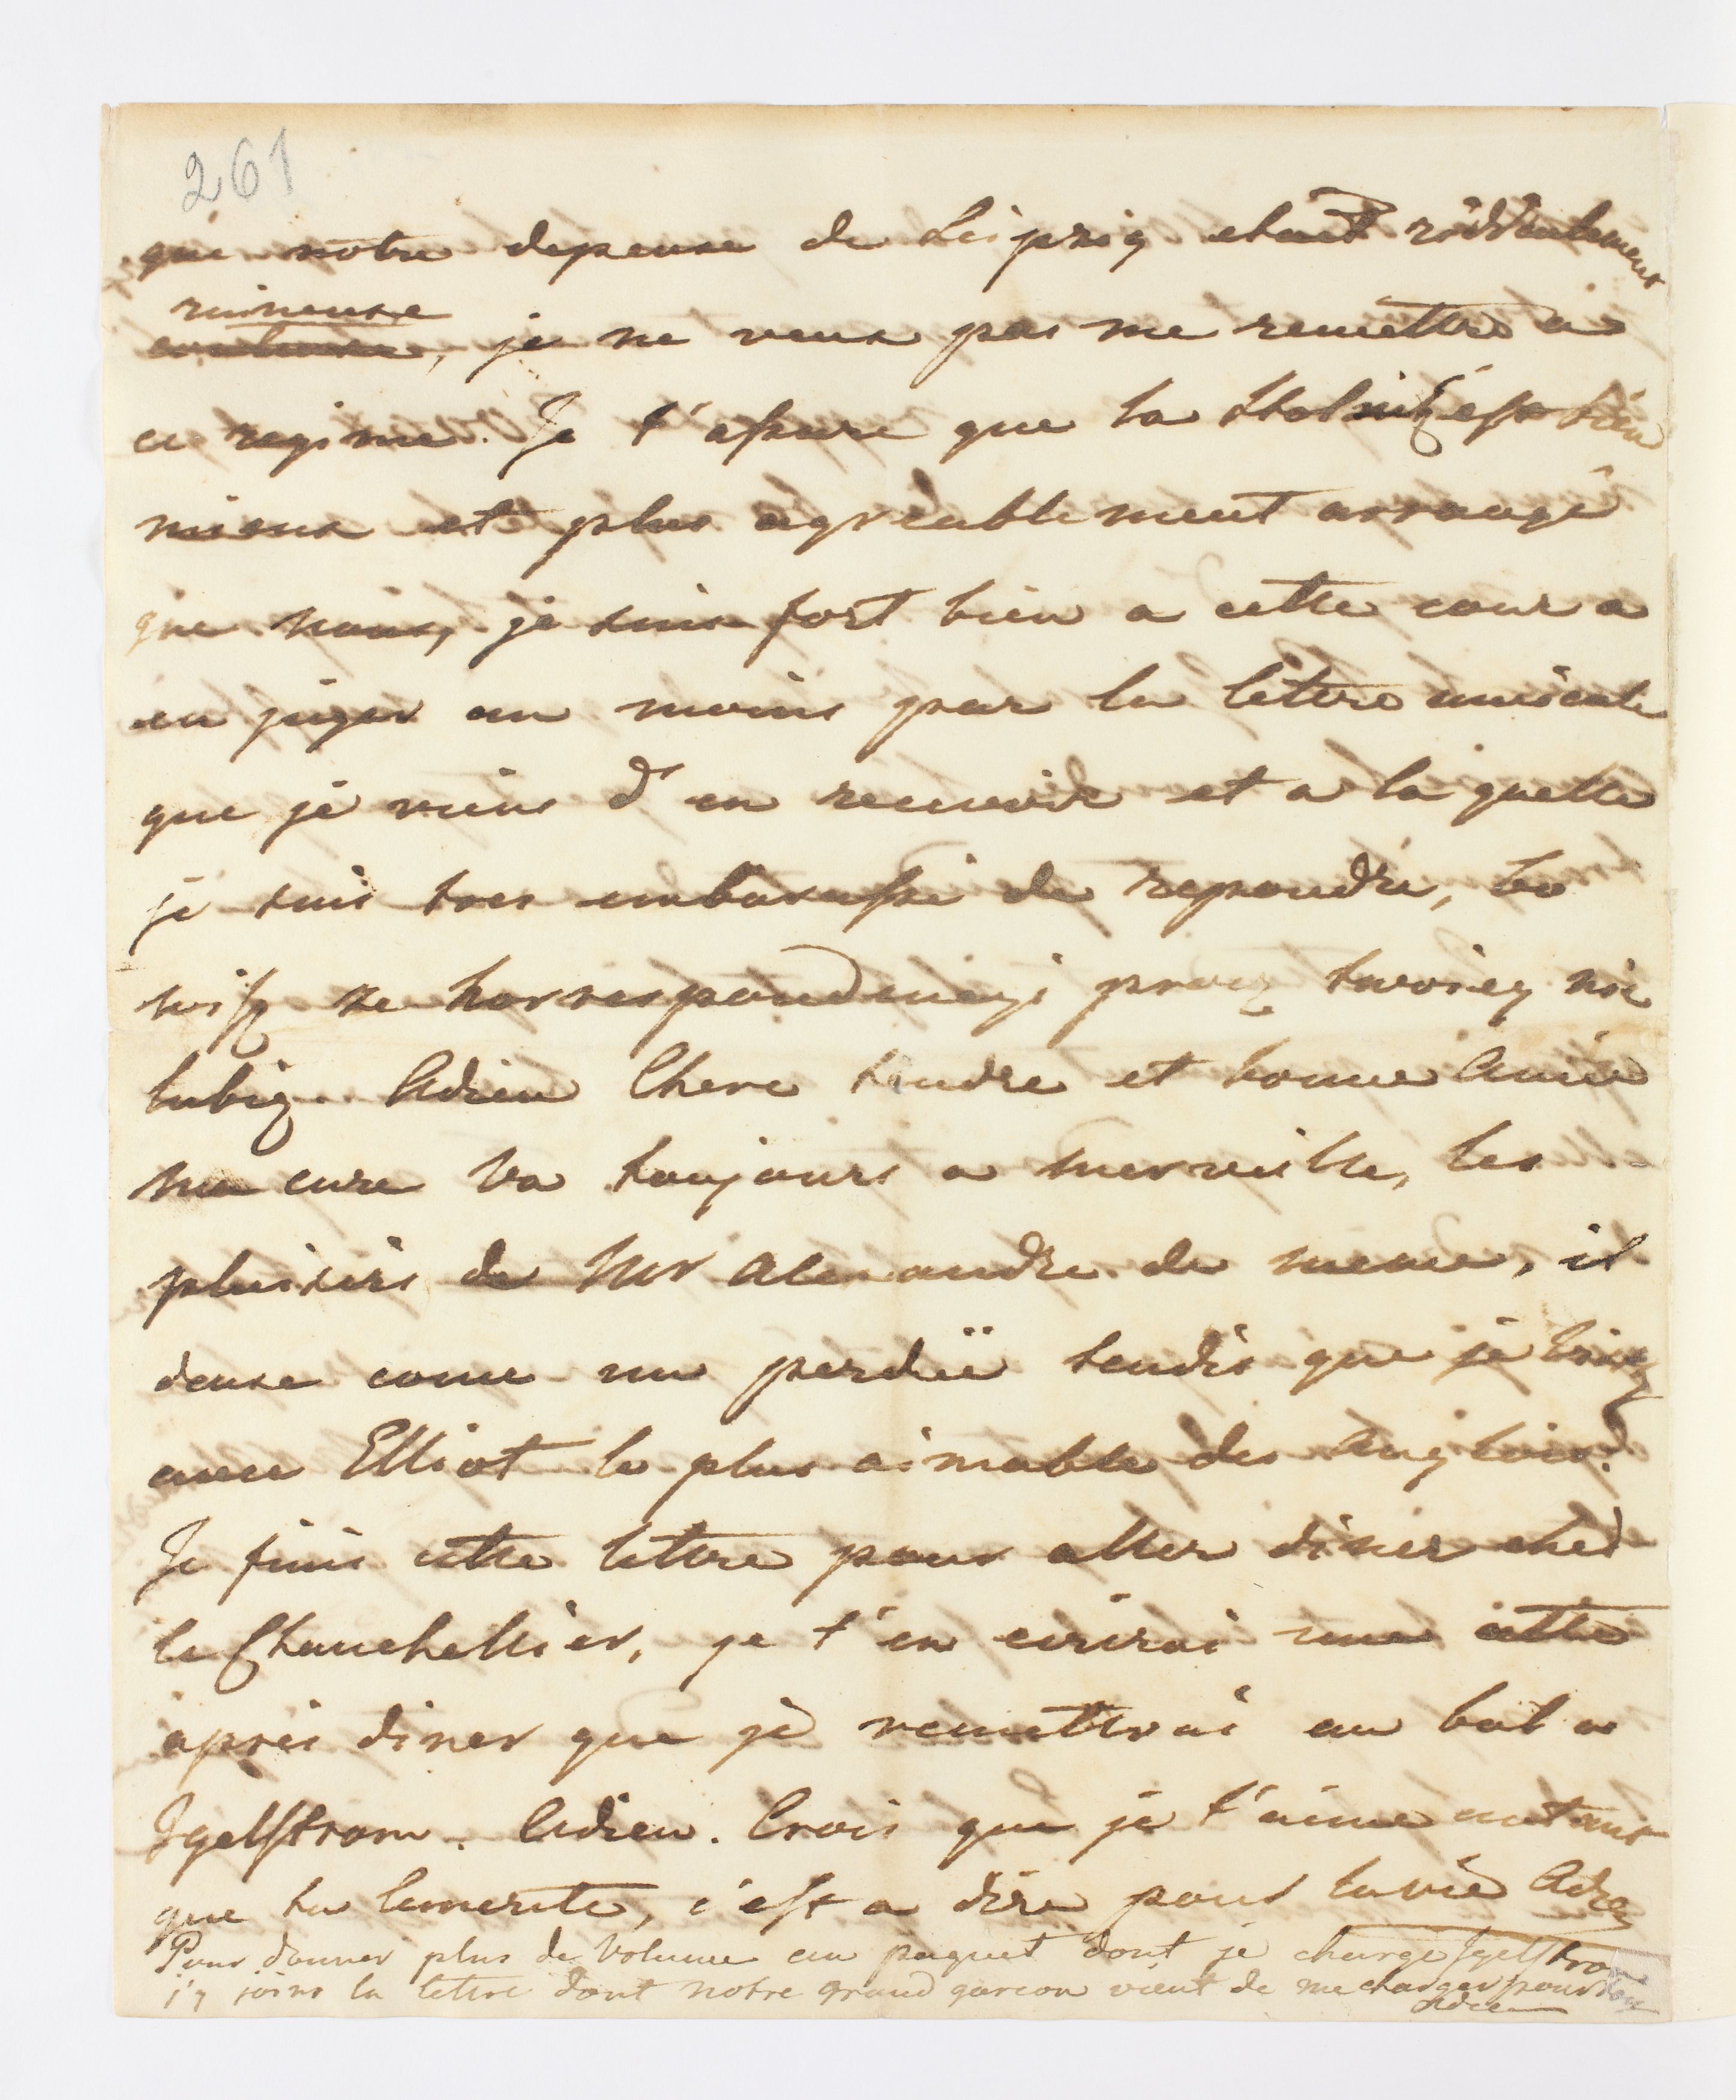 261
que notre depense de Leipzig etant ridiculement
ruineuse
, je ne veux pas me remettre a
ce regime. Je t'assure que la est bien
mieux et plus agreablement arrangé
que nous, je suis fort bien a cette cour a
en juger au moins par la lettre amicale
que je viens d'en recevoir et a la quelle
je suis tres embarassé de repondre, bo
wisz ze korrespondencyi procz twoiey nie
lubię. Adieu Chere tendre et bonne Amie
ma cure va toujours a merveille, les
plaisirs de Mr Alexandre de meme, il
danse come un perdü tandis que je
avec Elliot le plus aimable des Anglois.
Je finis cette lettre pour aller diner ched
le Chanchellier, je t'en ecrirai une cette
apres diner que je remettrai au bal a
Igelstrom. Adieu. Crois que je t'aime autant
que tu le merite, c'est a dire pour la vie Adieu
Pour donner plus de Volume au paquet dont je charge Igelstrom
j'y joins la lettre dont notre grand garcon vient de me charger pour
Adieu